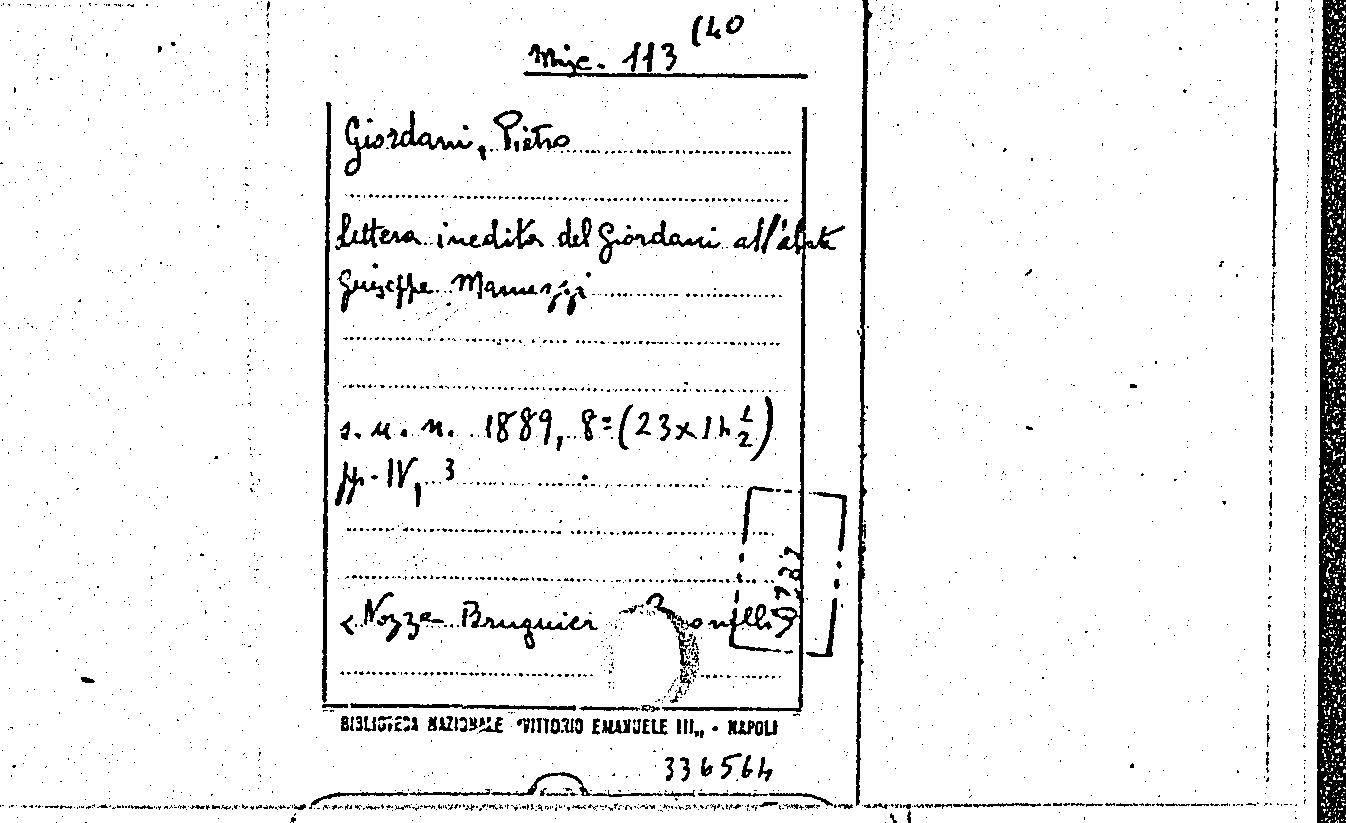 Misc. 113 (40
Giordani, Pietro
Lettera inedita del Giordani all'abate
Giuseppe Manuzzi
s. u. n. 1889, 8=(23x14 1/2)
pp. IV, 3
<Nozze Bruguier
BIBLIOTECA NAZIONALE "VITTORIO EMANUELE III„ - NAPOLI
336564